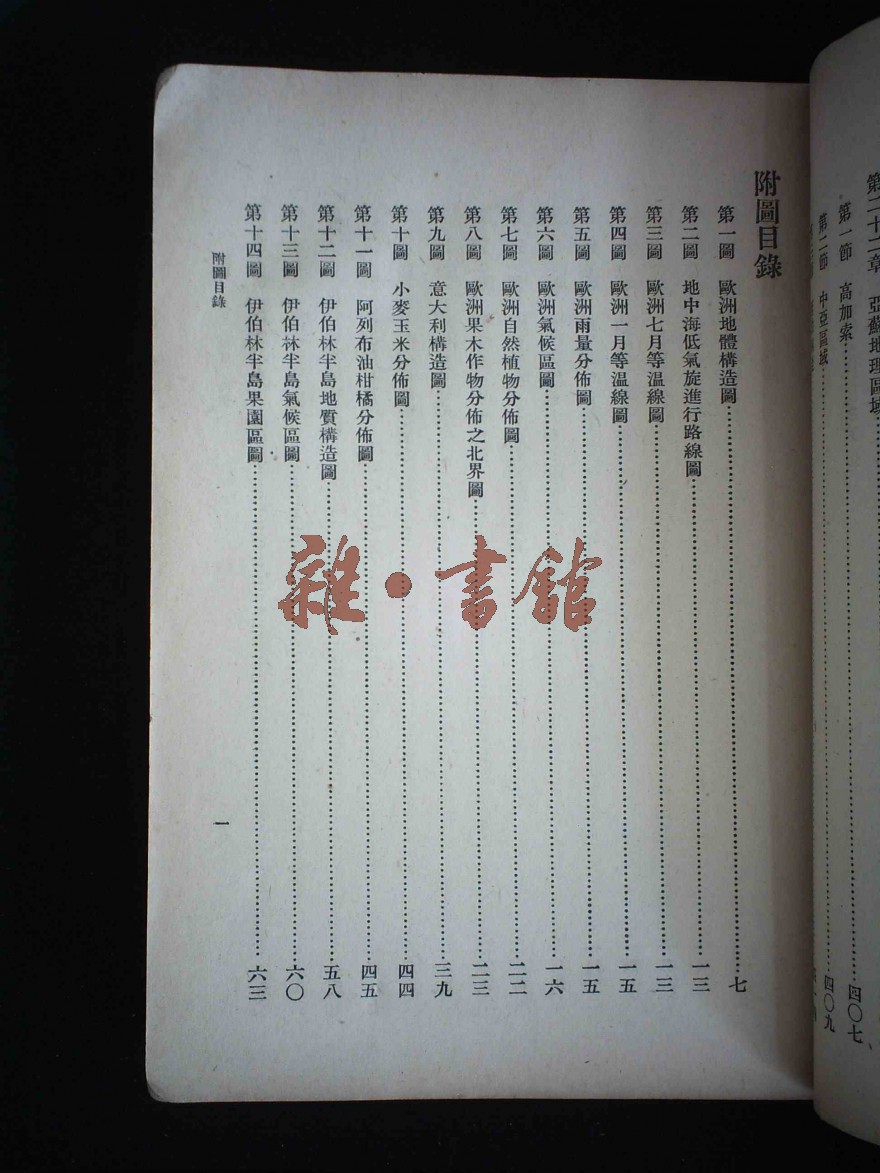 第二十二章 亞蘇地理區域
第一節 高加索……四〇七
第二節 中亞區域……四〇九
附圖目錄
第一圖 歐洲地體構造圖……七
第二圖 地中海低氣旋進行路線圖……一三
第三圖 歐洲七月等温線圖……一三
第四圖 歐洲一月等温線圖……一五
第五圖 歐洲雨量分佈圖……一五
第六圖 歐洲氣候區圖……一六
第七圖 歐洲自然植物分佈圖……二二
第八圖 歐洲果木作物分佈之北界圖……二三
第九圖 意大利構造圖……三九
第十圖 小麥玉米分佈圖……四四
第十一圖 阿列布油柑橘分佈圖……四五
第十二圖 伊伯林半島地質構造圖……五八
第十三圖 伊伯林半島氣候區圖……六〇
第十四圖 伊伯林半島果園區圖……六三
附圖目錄 一
雜·書館